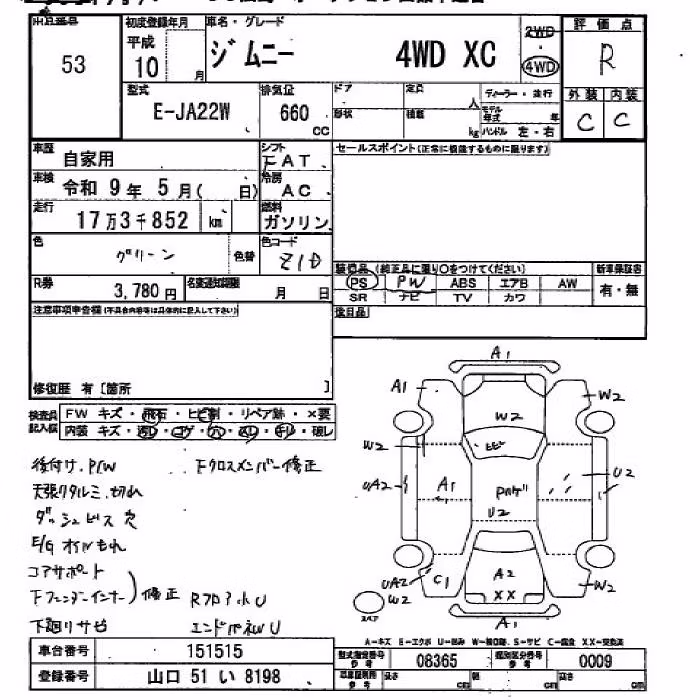 53
初度登録年月
平成
10 月
車名・グレード
ジムニー 4WD XC
2WD
4WD
評価点
R
外装 内装
C C
型式
E-JA22W
排気量
660 CC
ドア
定員 人
形状
積載 kg
ディーラー・並行
モデル年式 年
ハンドル 左・右
車歴
自家用
シフト
FAT
車検
令和 9年 5月( 日)
冷房
AC
走行
17万3千852 km
燃料
ガソリン
色
グリーン
色替
色コード
Z1D
R券
3,780円
名変通知期限
月 日
セールスポイント(正常に機能するものに限ります)
装備品(純正品に限り○をつけてください)
新車保証書
PS PW ABS エアB AW
有・無
SR ナビ TV カワ
後日品
注意事項申告欄(不具合内容等は具体的に記入して下さい)
修復歴 有[箇所 ]
検査員記入欄
FW キズ・飛石・ヒビ割・リペア跡・×要
内装 キズ・汚レ・コゲ・穴・スリ・チリ・破レ
後付け.P/W
下クロスメンバー修正
天張りタルミ.切れ
ダッシュビス穴
E/G オイルもれ
コアサポート
下フェンダーインナー)修正
RフロアホU
下廻りサビ
エンドパネルU
A1
A1
W2
W2
ヒビ
W2
UA2
A1
U2
U2
UA2
W2
C1
A2
XX
W2
A1
スペア
A-キズ E-エクボ U-凹み W-補修跡 S-サビ C-腐食 XX-交換済
車台番号
151515
登録番号
山口 51 い 8198
型式指定番号
参考
08365
類別区分番号
参考
0009
参考
長さ cm
幅 cm
高さ cm